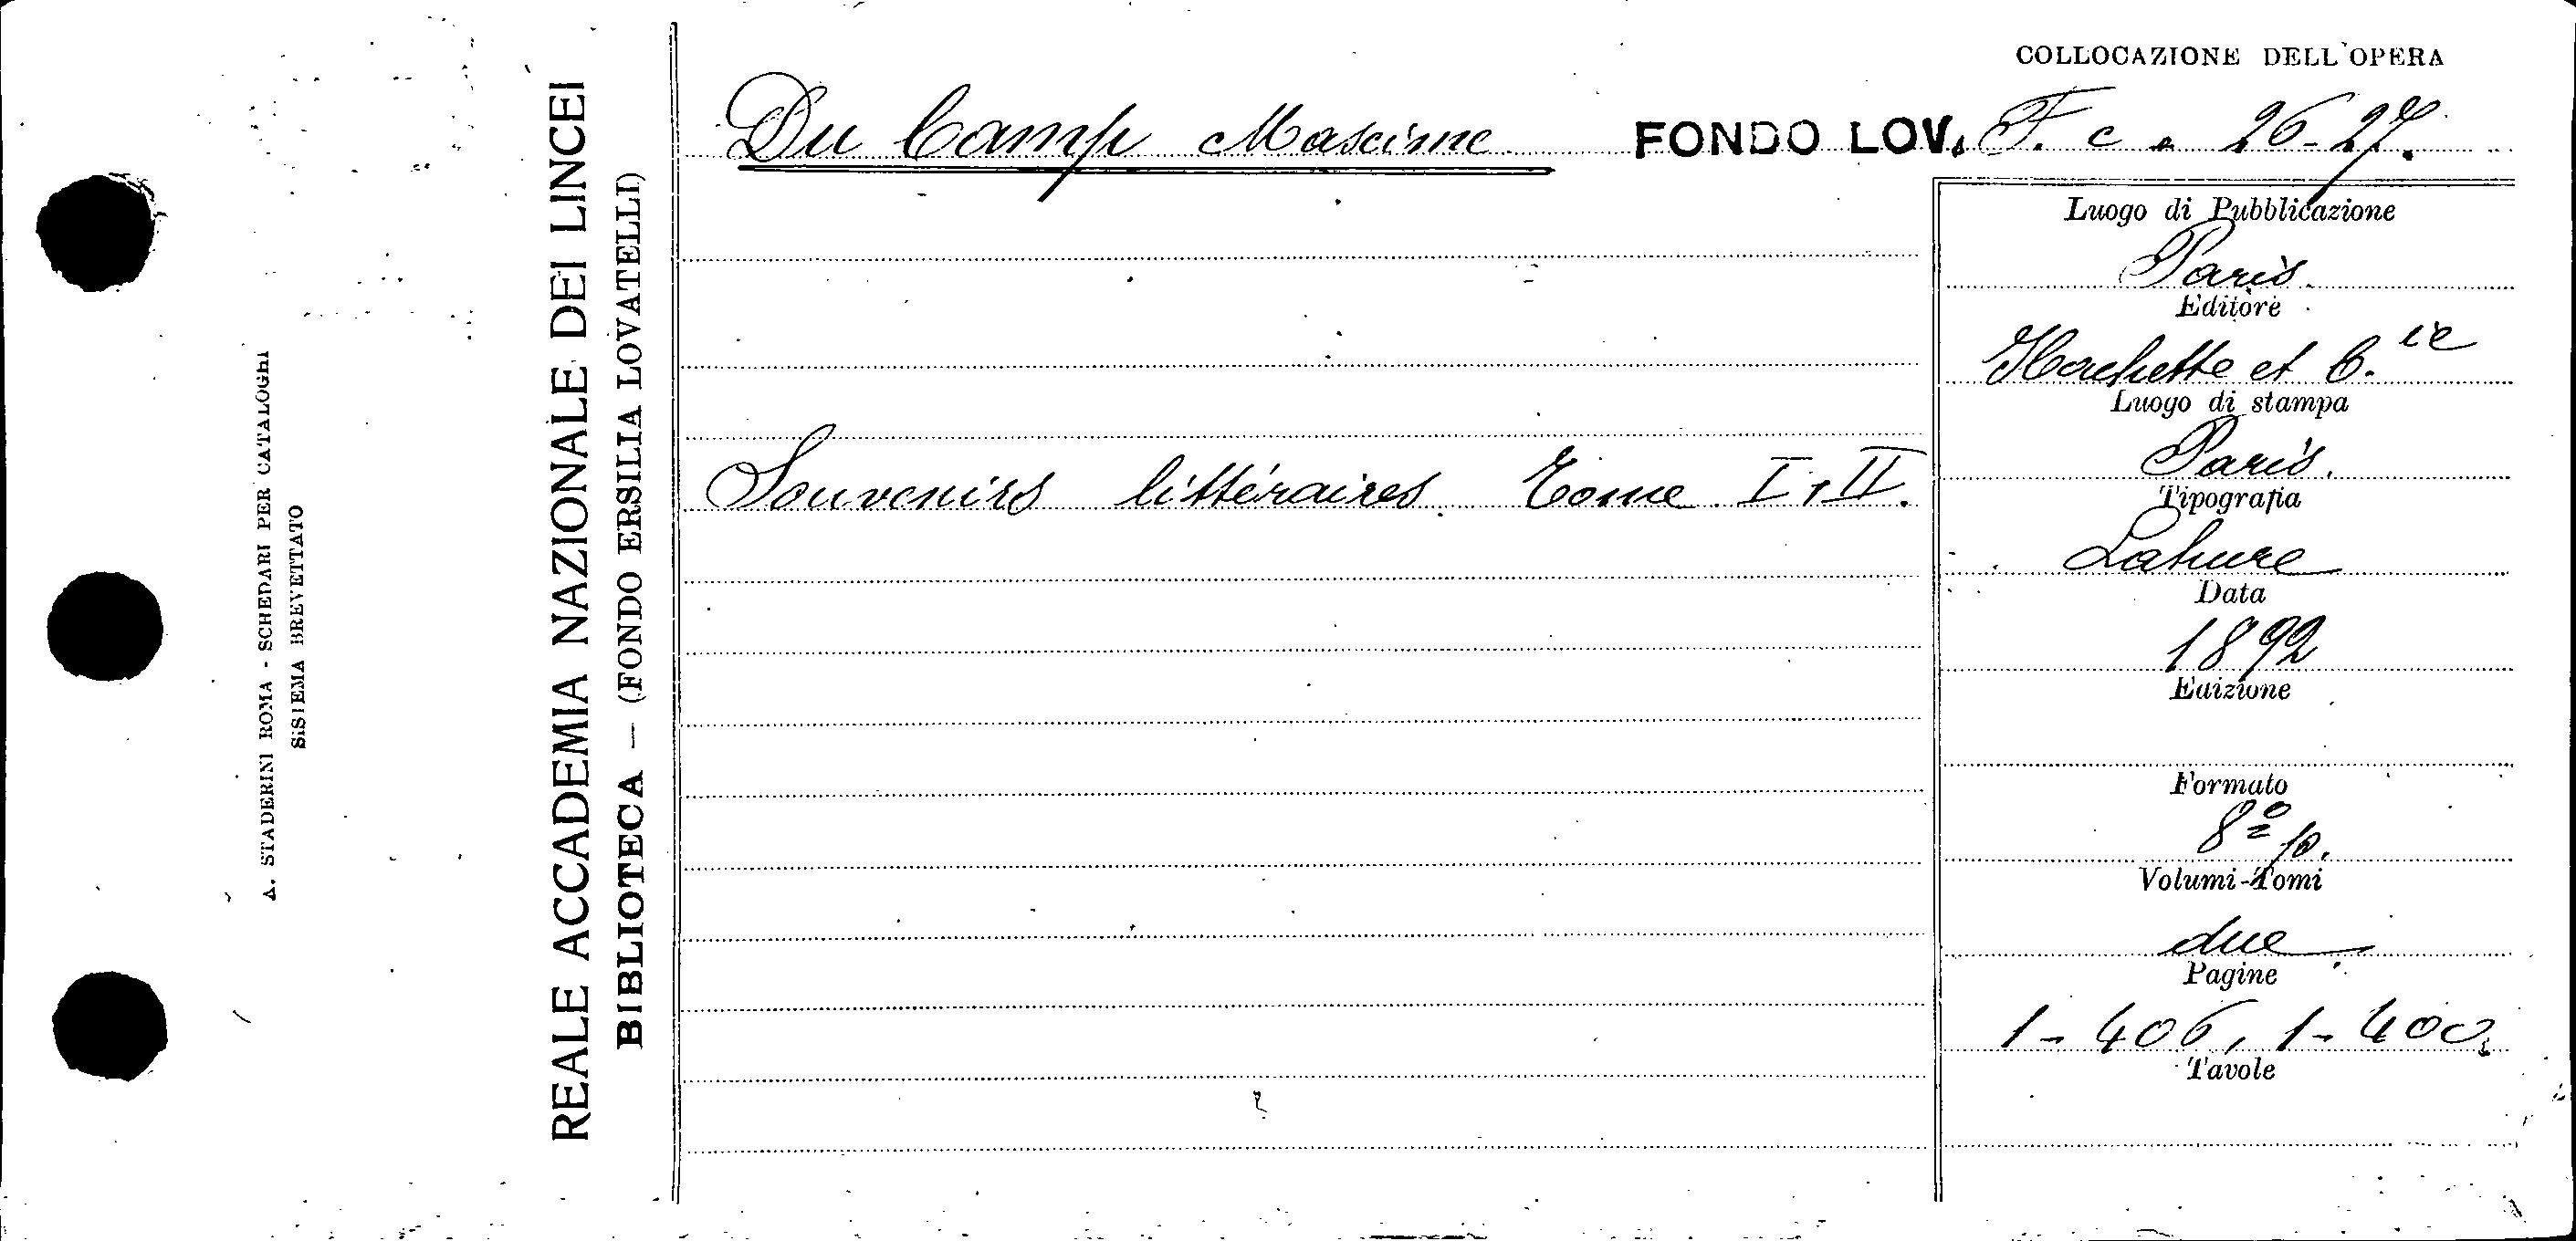 COLLOCAZIONE DELL'OPERA
Du Camp Maxime FONDO LOV. F. c. 26-27.
Souvenirs littéraires. Tome I, II.
Luogo di Pubblicazione
Paris.
Editore
Hachette et C.ie
Luogo di stampa
Paris.
Tipografia
Lahure
Data
1892
Edizione
Formato
8º p.
Volumi-Tomi
due
Pagine
1-406, 1-400.
Tavole
REALE ACCADEMIA NAZIONALE DEI LINCEI
BIBLIOTECA — (FONDO ERSILIA LOVATELLI)
A. STADERINI ROMA - SCHEDARI PER CATALOGHI
SISTEMA BREVETTATO